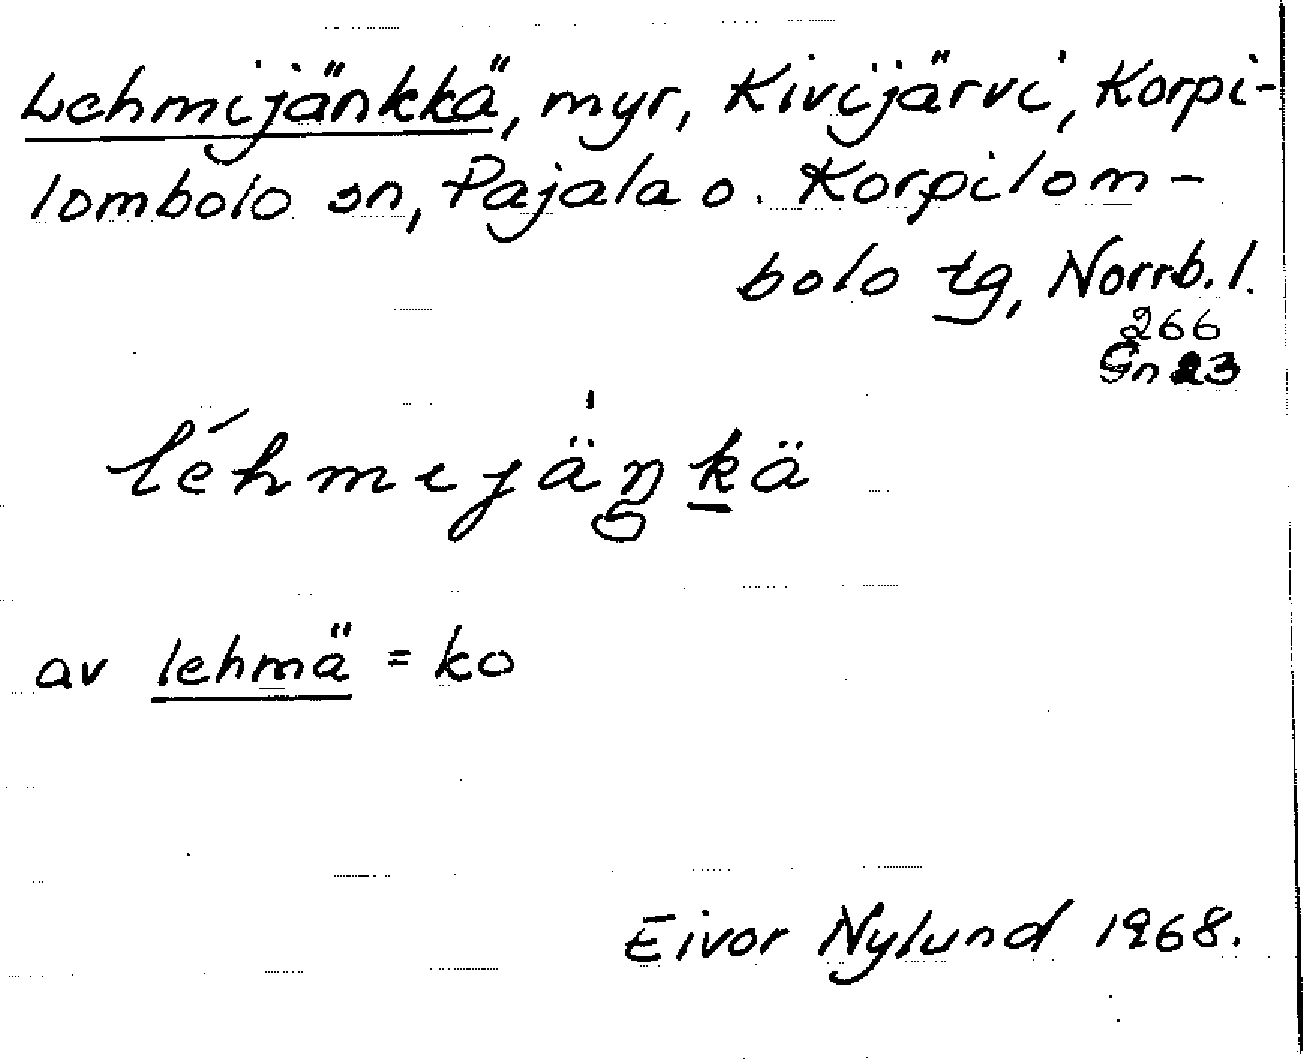 Lehmijänkkä, myr, Kivijärvi, Korpi-
lombolo sn, Pajala o. Korpilom-
bolo tg, Norrb. l.
266
Gn 23
léhmijäŋkä
av lehmä = ko
Eivor Nylund 1968.